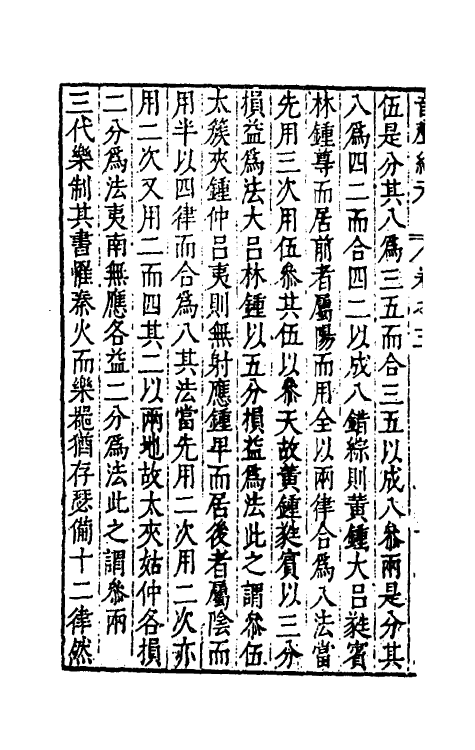 伍是分其八爲三五而合三五以成八參兩是分其
八爲四二而合四二以成八錯綜則黄鍾大吕蕤賓
林鍾尊而居前者屬陽而用全以兩律合爲入法當
先用三次用伍參其伍以參天故黄鍾蕤賓以三分
損益爲法大吕林鍾以五分損益爲法此之謂參伍
太簇夾鍾仲吕夷則無射應鍾卑而居後者屬陰而
用半以四律而合爲八其法當先用二次用二次亦
用二次又用二而四其二以兩地故太夾姑仲各損
二分爲法夷南無應各益二分爲法此之謂參兩
三代樂制其書惟秦火而樂器猶存瑟備十二律然